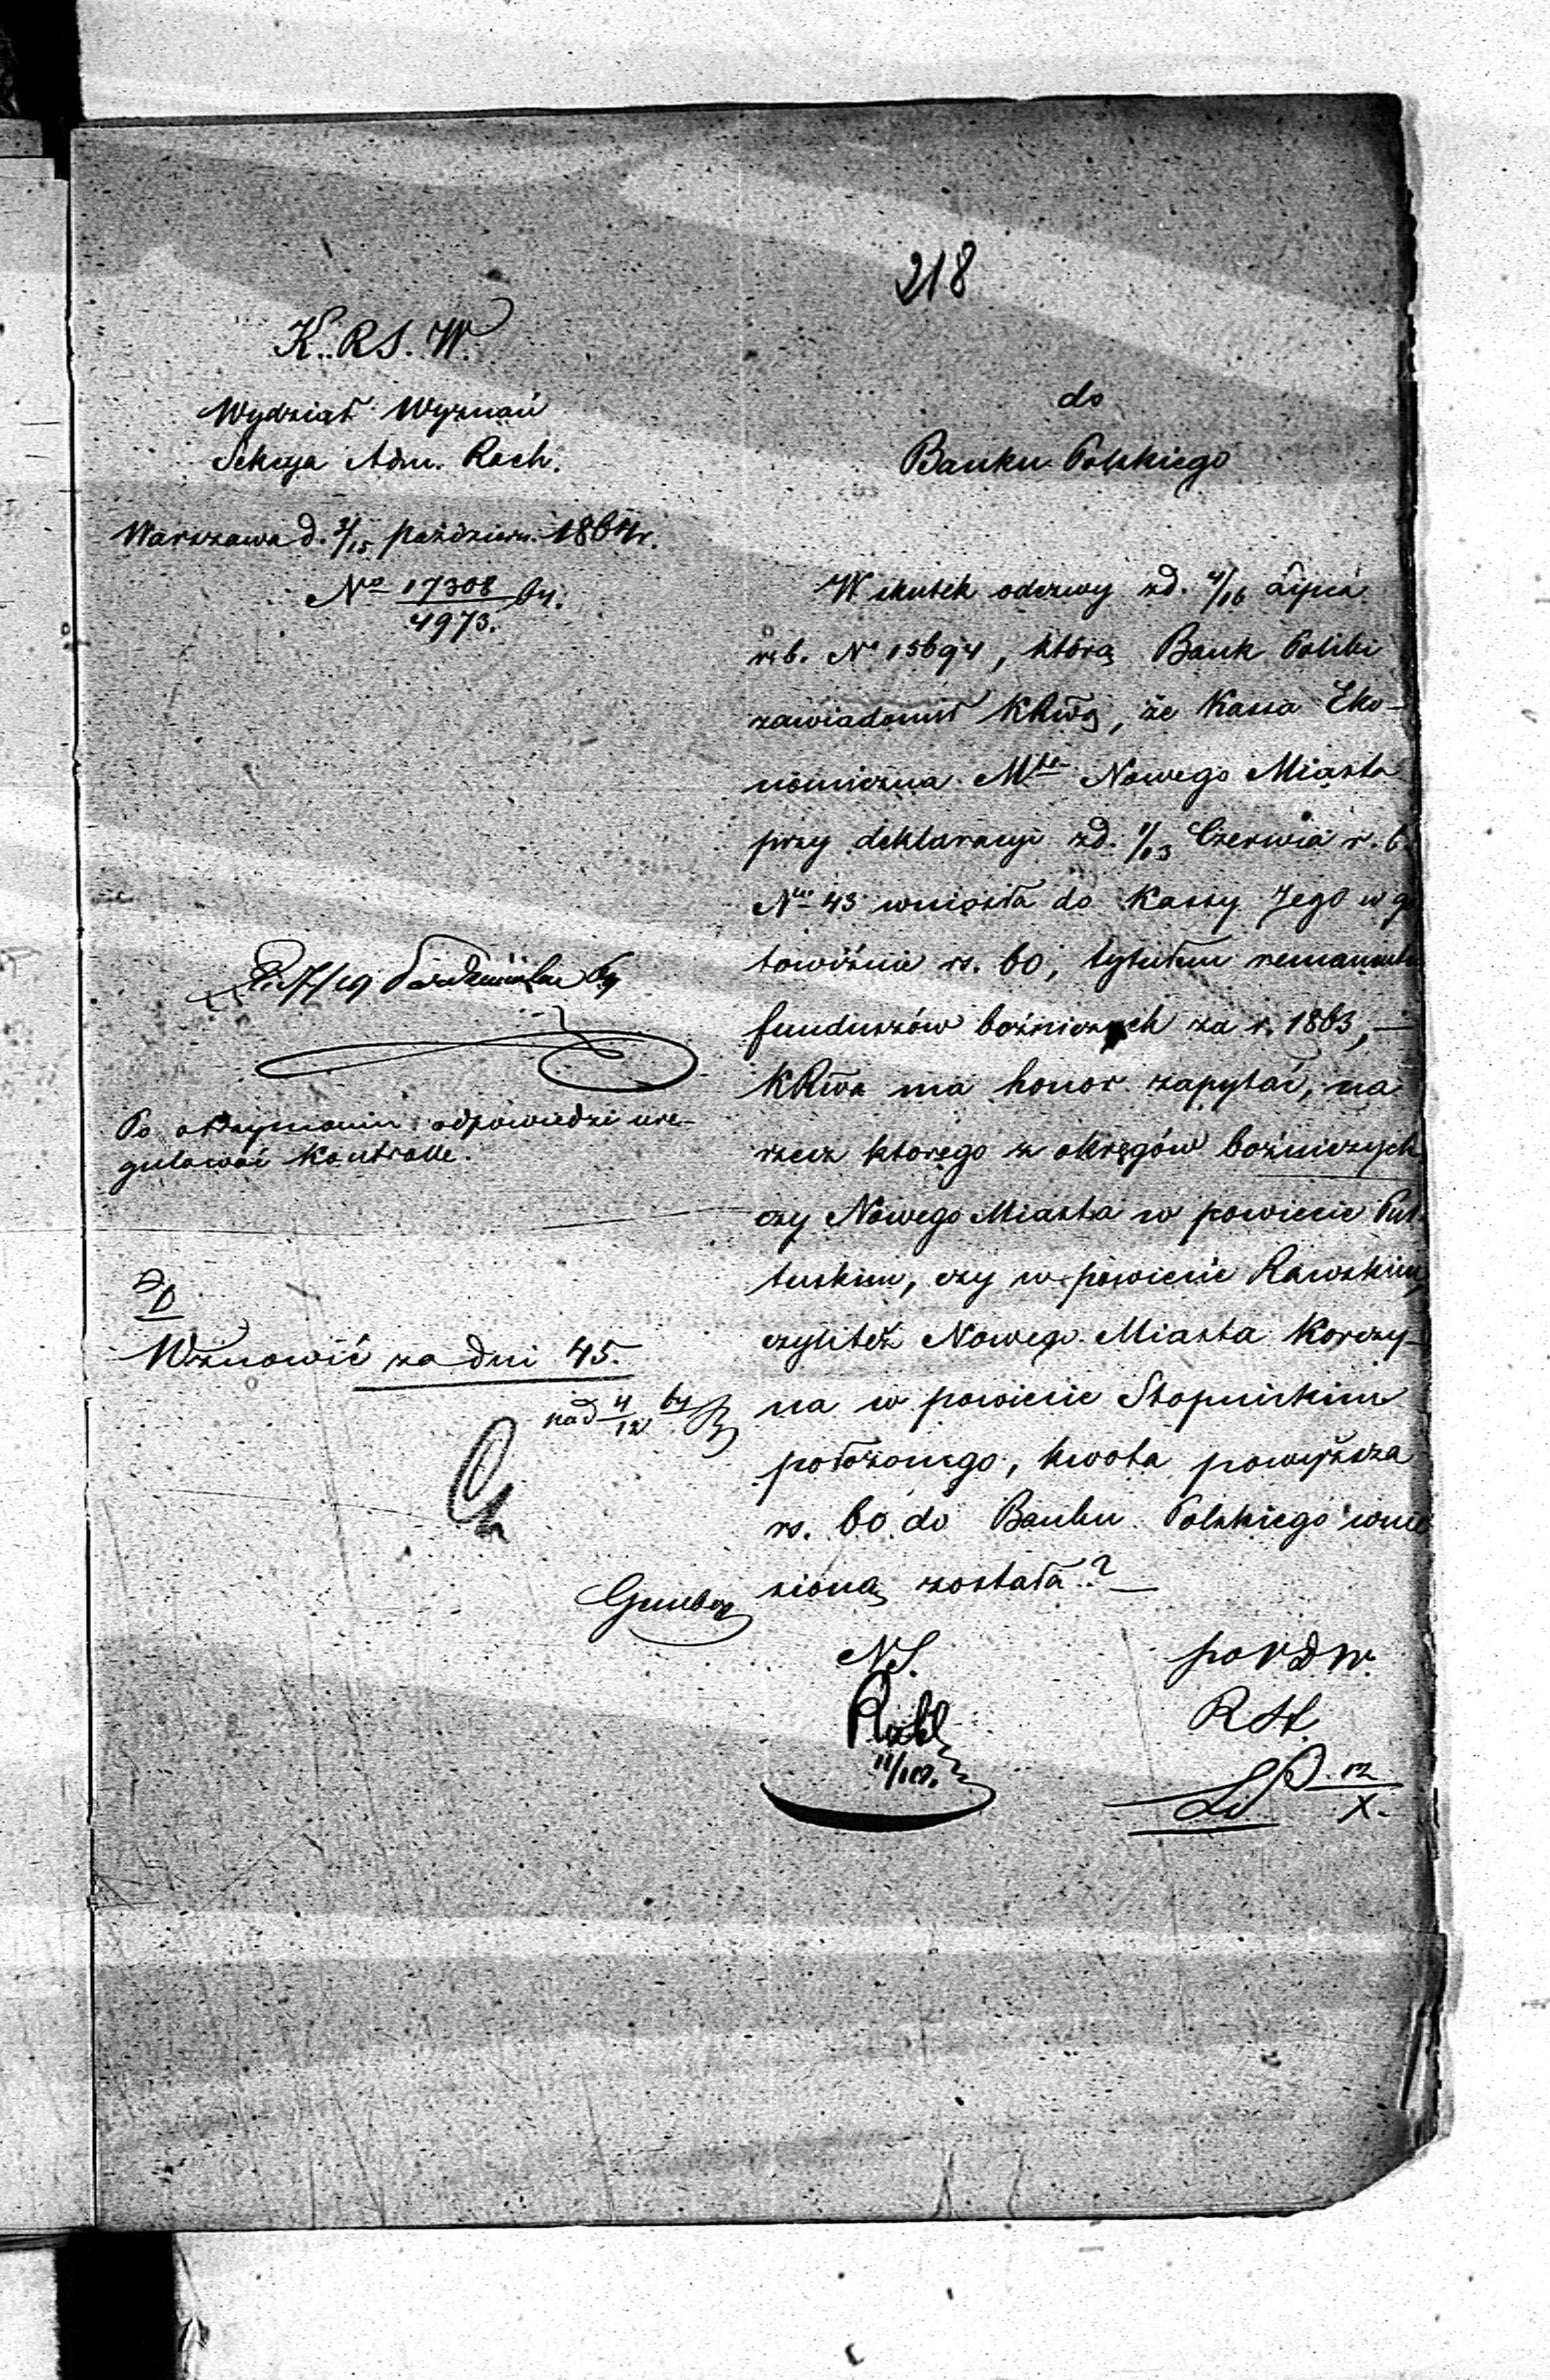 218
K. R S. W.
Wydział Wyznań
Sekcya Adm. Rach.
Warszawa d. 3/15 Październ. 1864 r.
No 17308/4973. 64.
do
Banku Polskiego
W skutek odezwy z d. 4/16 Lipca
r. b. No 15694, którą Bank Polski
zawiadomił KRwą, że Kassa Eko-
nomiczna Mta Nowego Miasta
przy deklaracyi z d. 1/13 Czerwca r. b.
No 43 wniosła do Kassy Jego w go
towiźnie rs. 60, tytułem remanentu
funduszów bożniczych za r. 1863, —
KRwa ma honor zapytać, na
rzecz którego z okręgów bożniczych
czy Nowego Miasta w powiecie Puł-
tuskim, czy w powiecie Rawskim,
czyliteż Nowego Miasta Korczy-
na w powiecie Stopnickim
położonego, kwota powyższa
rs. 60 do Banku Polskiego wnie
sioną została? —
Po otrzymaniu odpowiedzi ure-
gulować Kontrolle.
Wznowić za dni 45.
4/12 64
N S.
11/10.
po r D W.
R St.
12/X.